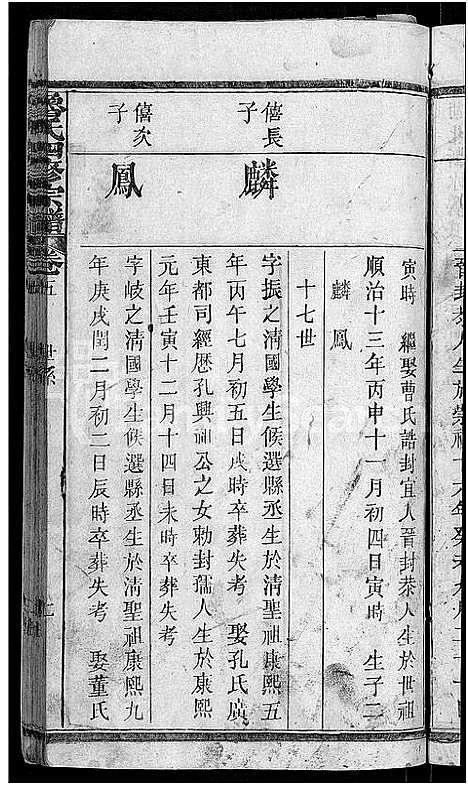 寅時 繼娶曹氏誥封宜人晉封恭人生於世祖
順治十三年丙申十一月初四日寅時 生子二
麟 鳳
十七世
僖長子
麟
字振之清國學生候選縣丞生於清聖祖康熙五
年丙午七月初五日戌時卒葬失考 娶孔氏廣
東都司經歷孔興祖公之女勅封孺人生於康熙
元年壬寅十二月十四日未時卒葬失考
僖次子
鳳
字岐之清國學生候選縣丞生於清聖祖康熙九
年庚戌閏二月初二日辰時卒葬失考 娶董氏
氏四修宗譜 卷五 世系 二